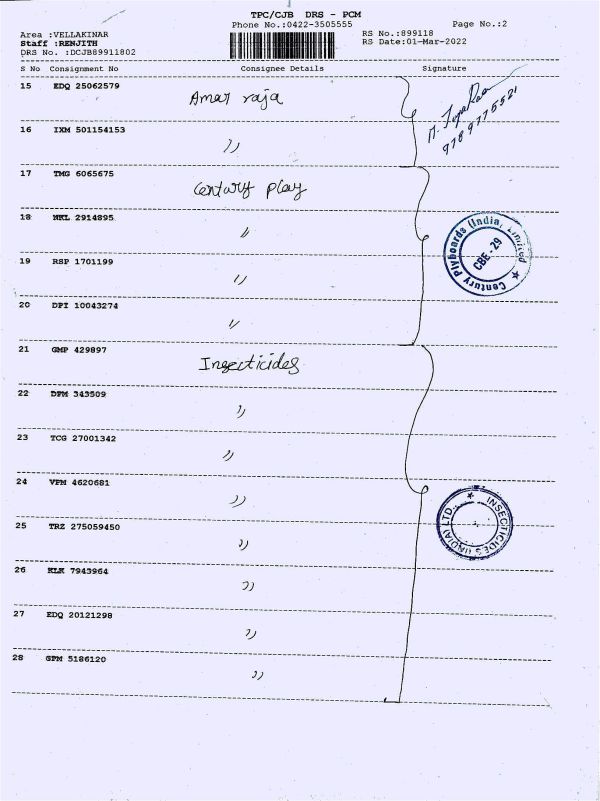 TPC/CJB DRS - PCM
Phone No.:0422-3505555 Page No.:2
Area :VELLAKINAR RS No.:899118
Staff :RENJITH RS Date:01-Mar-2022
DRS No. :DCJB89911802
S No Consignment No Consignee Details Signature
15 EDQ 25062579 Amar raja
9789775521
16 IXM 501154153 〃
17 TMG 6065675 Century play
18 NKL 2914895 〃
Century Plyboards (India) Limited
CBE - 29
19 RSP 1701199 〃
20 DPI 10043274 〃
21 GMP 429897 Insecticides
22 DPM 343509 〃
23 TCG 27001342 〃
24 VPM 4620681 〃
INSECTICIDES (INDIA) LTD.
25 TRZ 275059450 〃
26 KLK 7943964 〃
27 EDQ 20121298 〃
28 GPM 5186120 〃